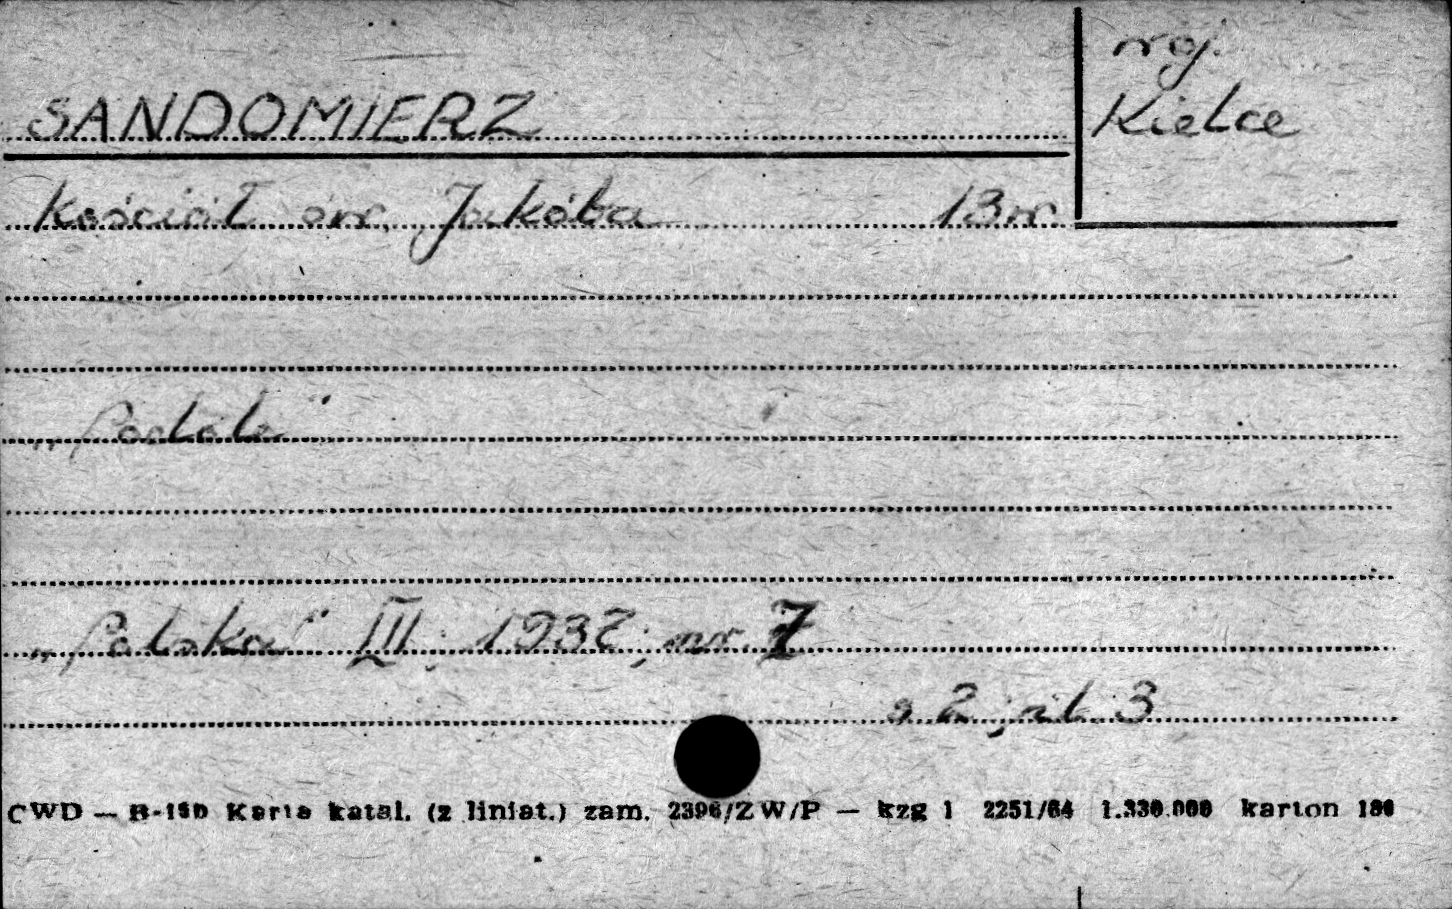 woj.
Kielce
SANDOMIERZ
Kościół św. Jakóba 13 w.
"Polska" III; 1937; nr. 7
s 2, il. 3
CWD — B-150 Karta katal. (z liniat.) zam. 2396/ZW/P — kzg 1 2251/64 1.330.000 karton 180